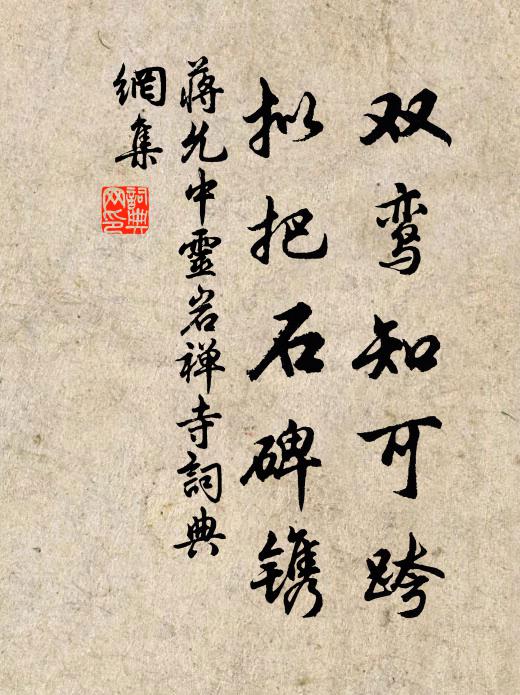 双鸾知可跨
拟把石碑镌
蒋允中靈岩禅寺詞典
網集
詞典
网印